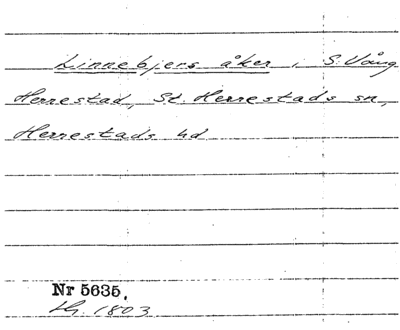 Linnebjers åker i S. Vång
Herrestad, St. Herrestads sn,
Herrestads hd
Nr 5635.
1803